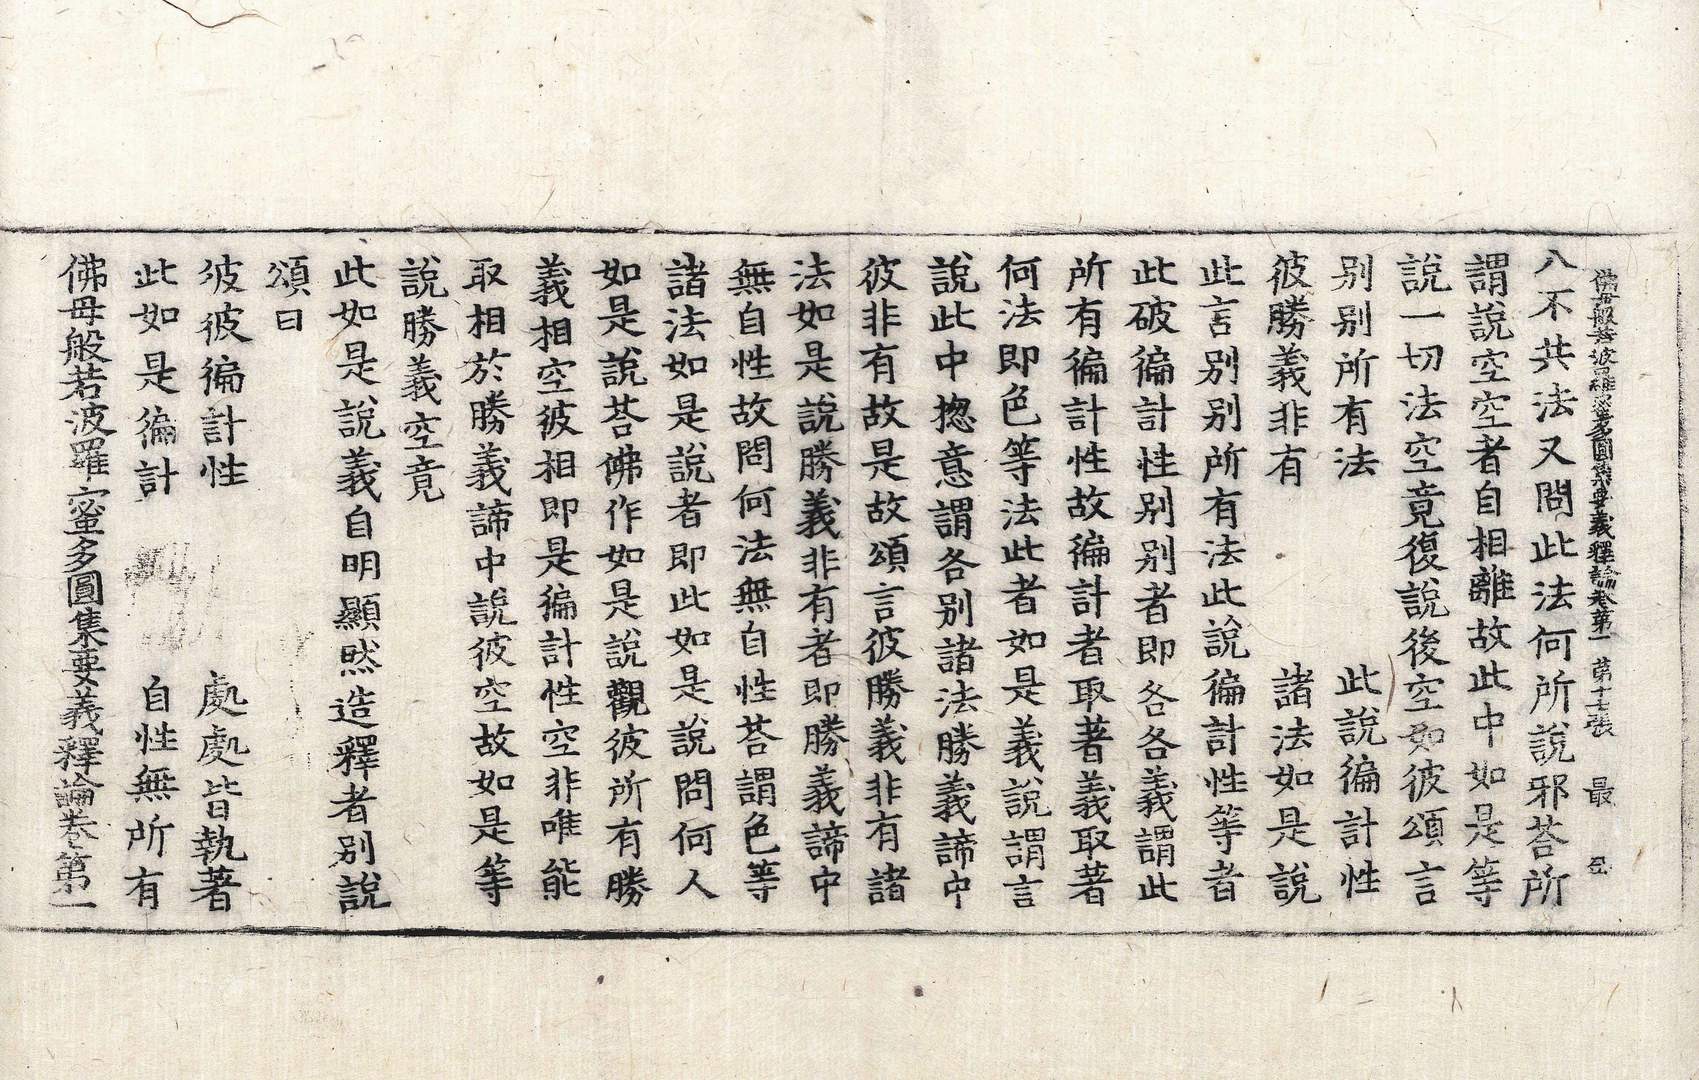 佛母般若波羅蜜多圓集要義釋論卷第一 第十七張 最
八不共法又問此法何所說邪荅所
謂說空空者自相離故此中如是等
說一切法空竟復說後空如彼頌言
別別所有法 此說徧計性
彼勝義非有 諸法如是說
此言別別所有法此說徧計性等者
此破徧計性別別者即各各義謂此
所有徧計性故徧計者取著義取著
何法即色等法此者如是義說謂言
說此中揔意謂各別諸法勝義諦中
彼非有故是故頌言彼勝義非有諸
法如是說勝義非有者即勝義諦中
無自性故問何法無自性荅謂色等
諸法如是說者即此如是說問何人
如是說荅佛作如是說觀彼所有勝
義相空彼相即是徧計性空非唯能
取相於勝義諦中說彼空故如是等
說勝義空竟
此如是說義自明顯然造釋者別說
頌曰
彼彼徧計性 處處皆執著
此如是徧計 自性無所有
佛母般若波羅蜜多圓集要義釋論卷第一